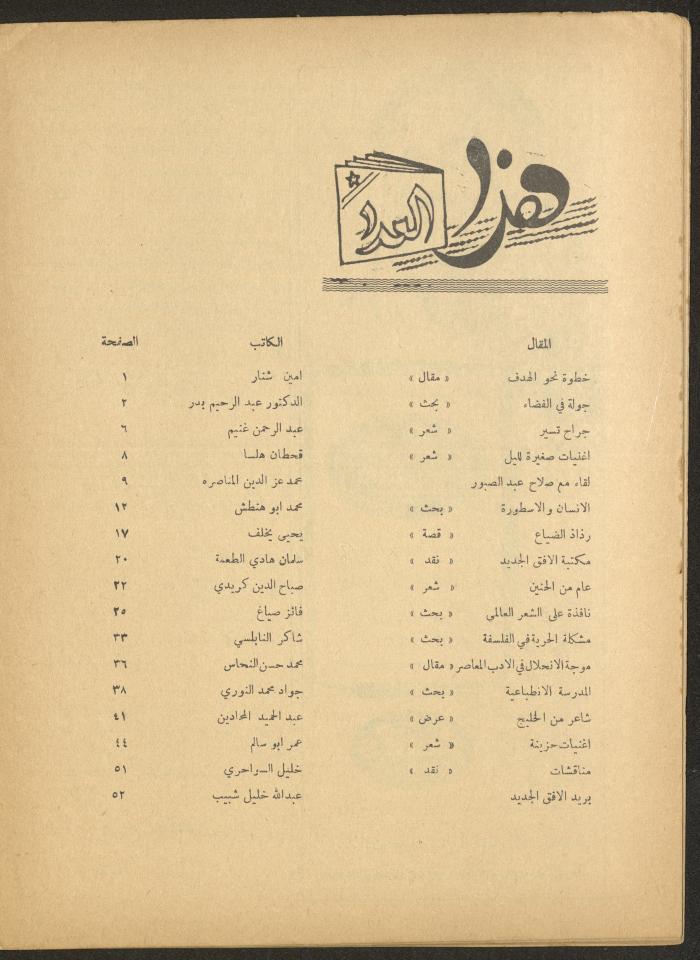 هذا العدد
المقال الكاتب الصفحة
خطوة نحو الهدف « مقال » امين شنار ١
جولة في الفضاء « بحث » الدكتور عبد الرحيم بدر ٢
جراح تسير « شعر » عبد الرحمن غنيم ٦
اغنيات صغيرة لليل « شعر » قحطان هلسا ٨
لقاء مع صلاح عبد الصبور محمد عز الدين المناصره ٩
الانسان والاسطورة « بحث » محمد ابو هنطش ١٢
رذاذ الضياع « قصة » يحيى يخلف ١٧
مكتبة الافق الجديد « نقد » سلمان هادي الطعمة ٢٠
عام من الحنين « شعر » صباح الدين كريدي ٢٢
نافذة على الشعر العالمي « بحث » فائز صياغ ٢٥
مشكلة الحرية في الفلسفة « بحث » شاكر النابلسي ٣٣
موجة الانحلال في الادب المعاصر « مقال » محمد حسن النحاس ٣٦
المدرسة الانطباعية « بحث » جواد محمد النوري ٣٨
شاعر من الخليج « عرض » عبد الحميد المحادين ٤١
اغنيات حزينة « شعر » عمر ابو سالم ٤٤
مناقشات « نقد » خليل السواحري ٥١
بريد الافق الجديد عبدالله خليل شبيب ٥٢